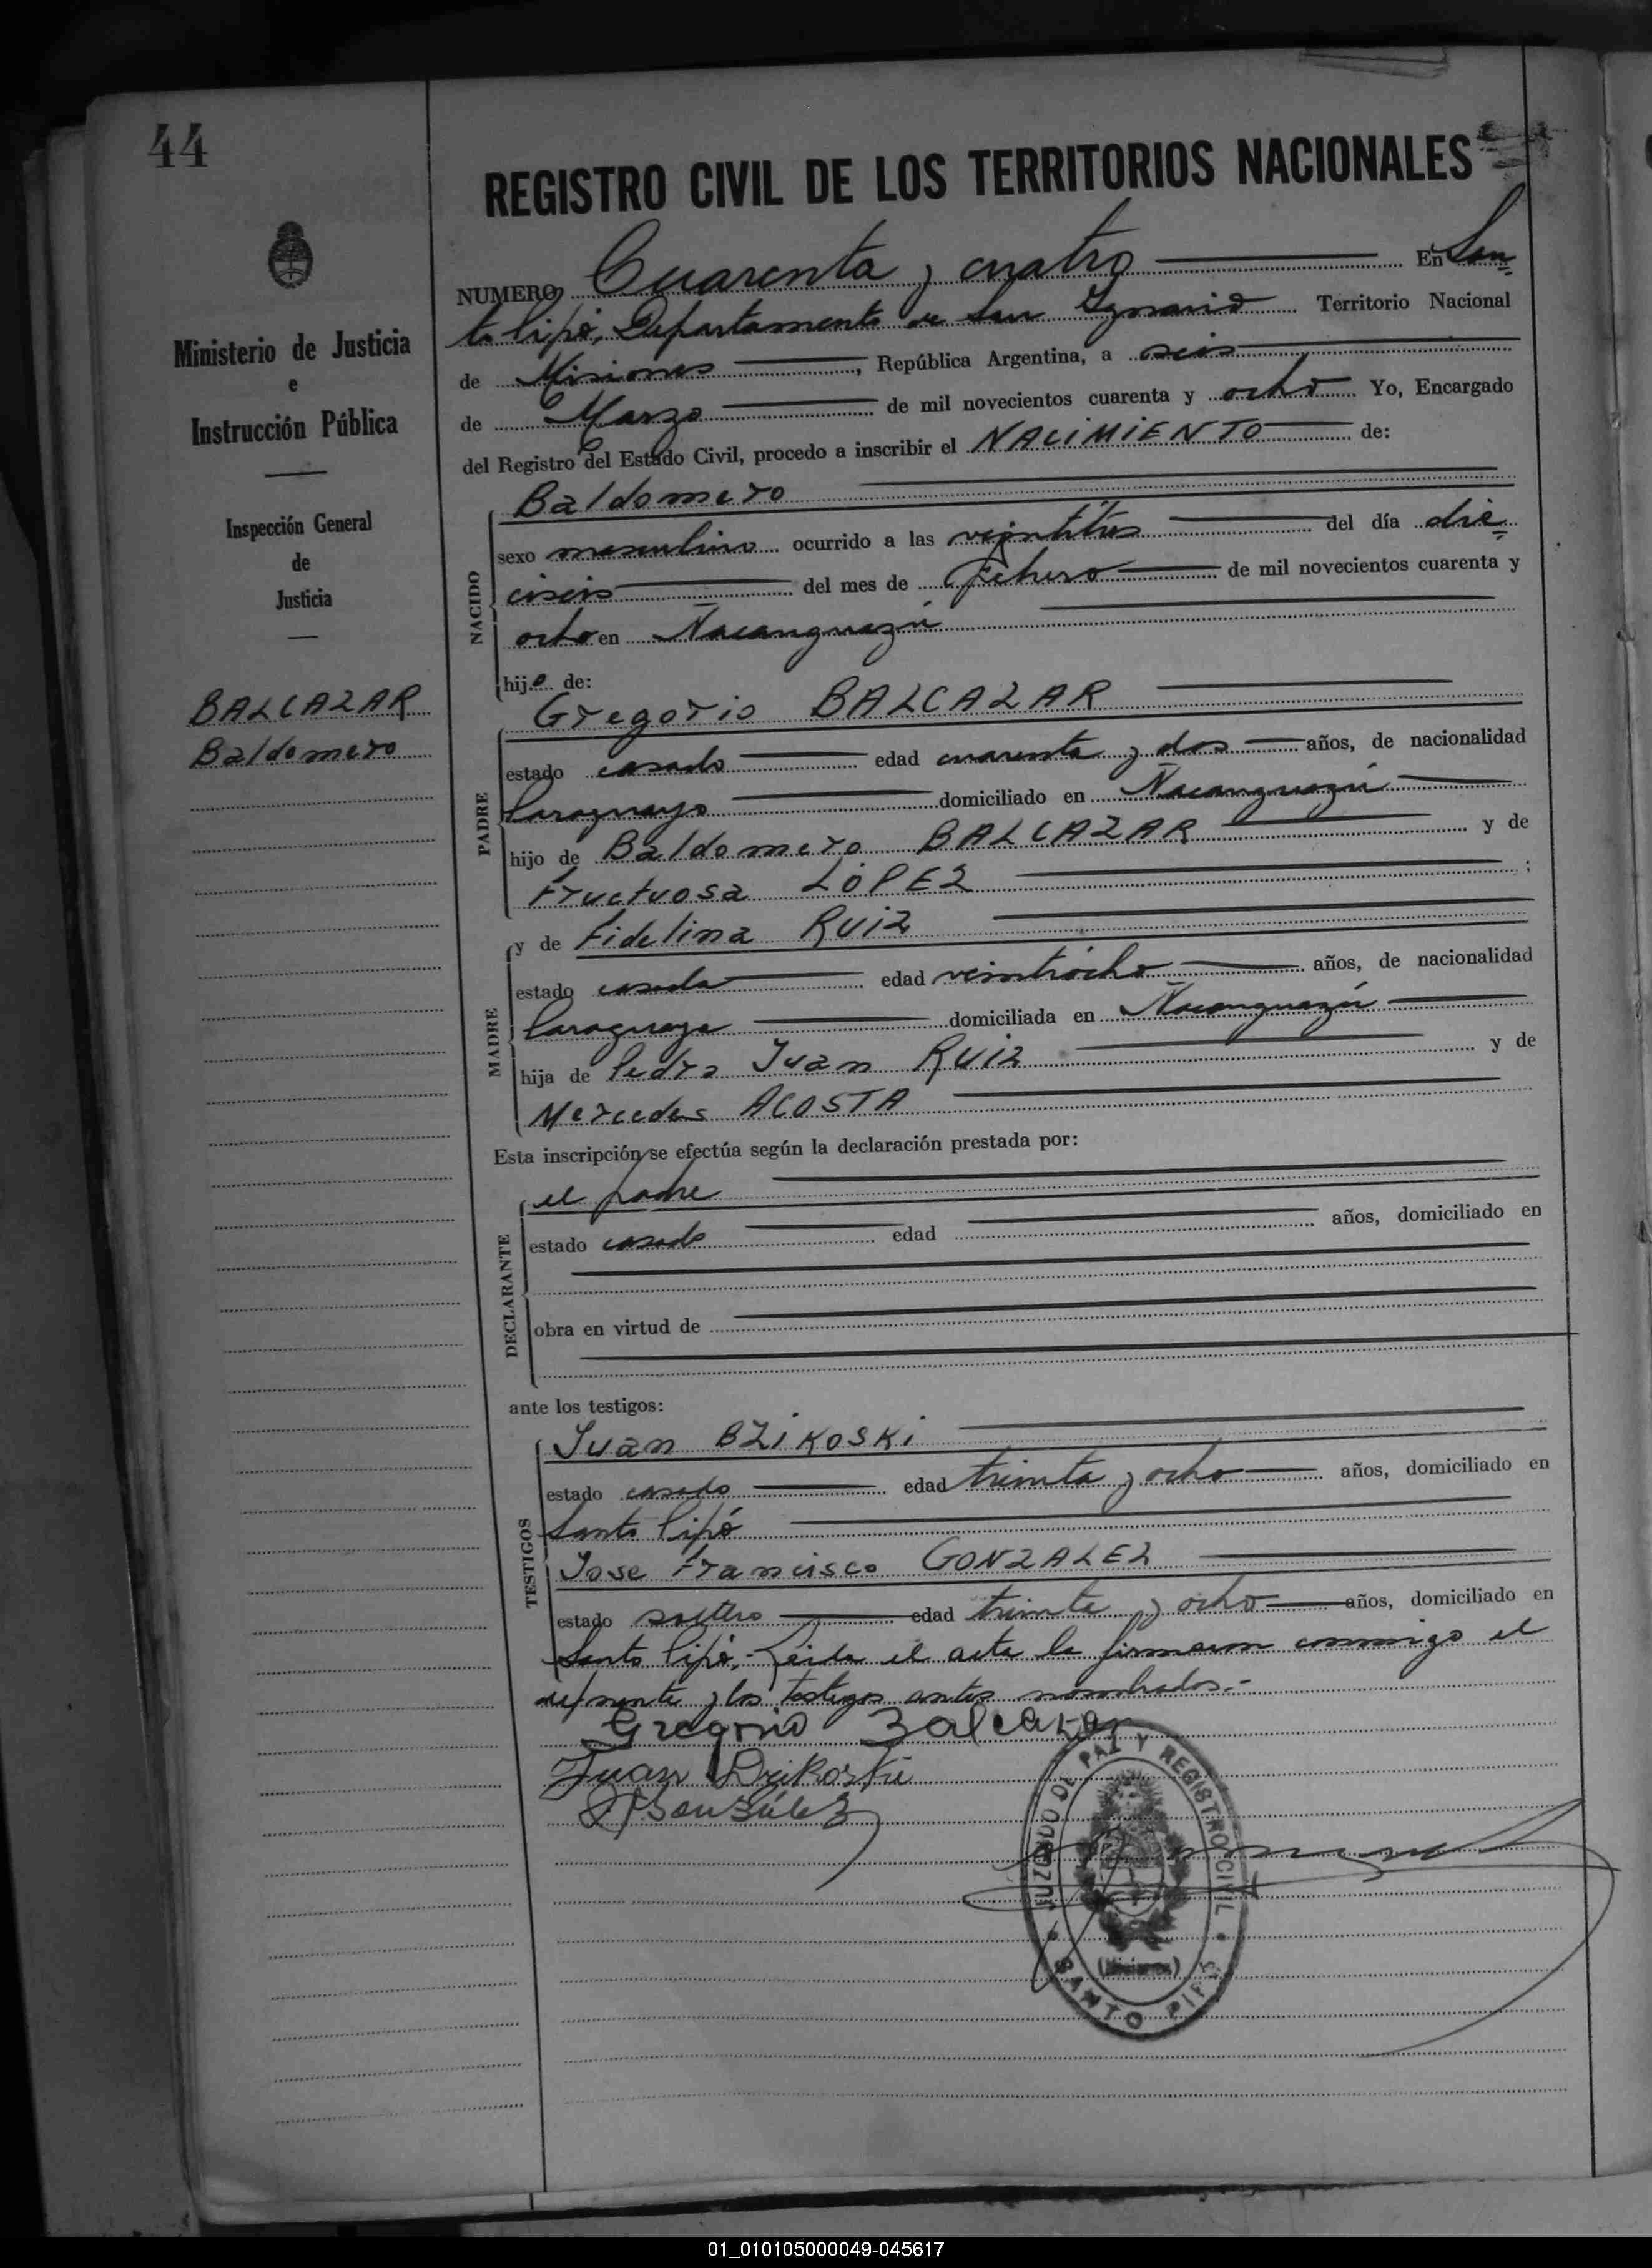 44
REGISTRO CIVIL DE LOS TERRITORIOS NACIONALES
Ministerio de Justicia
e
Instrucción Pública
Inspección General
de
Justicia
BALCAZAR
Baldomero
NUMERO Cuarenta y cuatro En San=
to Pipó, Departamento de San Ignacio Territorio Nacional
de Misiones, República Argentina, a seis
de Marzo de mil novecientos cuarenta y ocho Yo, Encargado
del Registro del Estado Civil, procedo a inscribir el NACIMIENTO de:
NACIDO
Baldomero
sexo masculino ocurrido a las veintitres del día die=
ciseis del mes de Febrero de mil novecientos cuarenta y
ocho en Ñacanguazú
hijo de:
PADRE
Gregorio BALCAZAR
estado casado edad cuarenta y dos años, de nacionalidad
Paraguayo domiciliado en Ñacanguazú
hijo de Baldomero BALCAZAR y de
Fructuosa LOPEZ ;
MADRE
y de Fidelina RUIZ
estado casada edad veintiocho años, de nacionalidad
Paraguaya domiciliada en Ñacanguazú
hija de Pedro Juan RUIZ y de
Mercedes ACOSTA
Esta inscripción se efectúa según la declaración prestada por:
DECLARANTE
el padre
estado casado edad años, domiciliado en
obra en virtud de
ante los testigos:
TESTIGOS
Juan BZIKOSKI
estado casado edad treinta y ocho años, domiciliado en
Santo Pipó
Jose Francisco GONZALEZ
estado soltero edad treinta y ocho años, domiciliado en
Santo Pipó.- Leida el acta la firmaron conmigo el
exponente y los testigos antes nombrados.-
Gregorio Balcazar
Juan Bzikoski
González
JUZGADO DE PAZ Y REGISTRO CIVIL
(Misiones)
SANTO PIPÓ
01_010105000049-045617